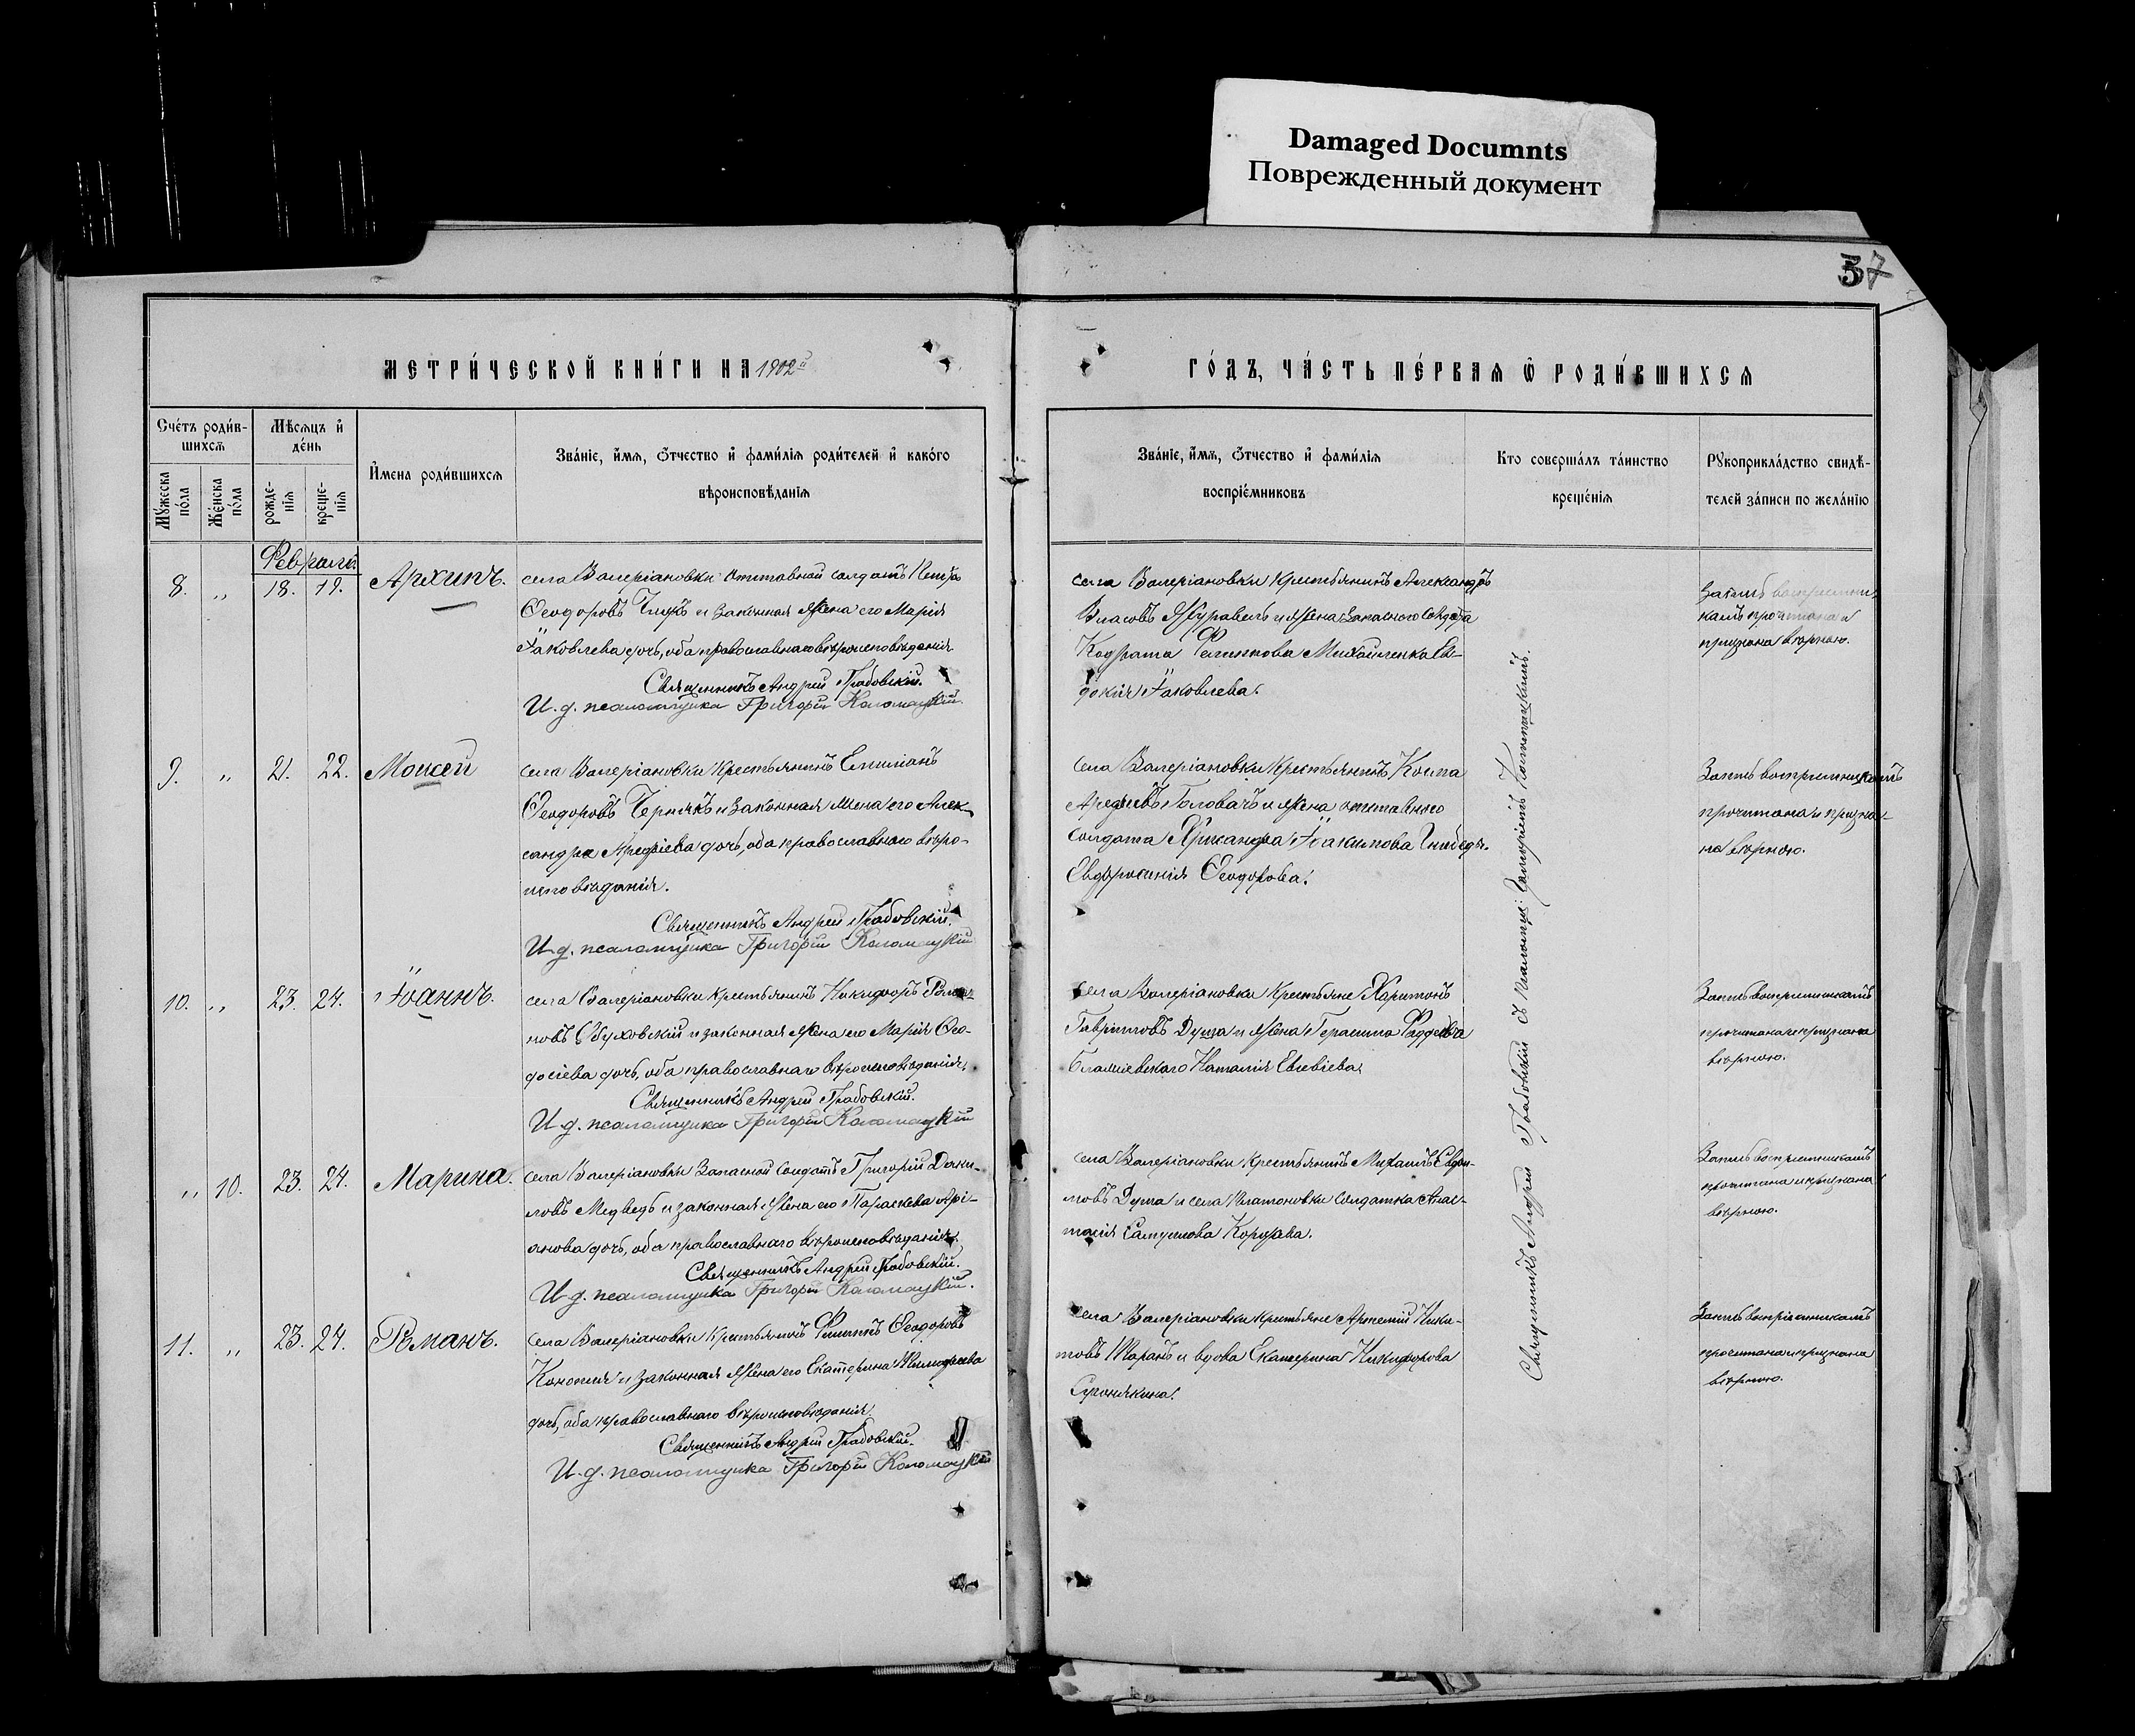 Damaged Documnts
Поврежденный документ
57
МЕТРИ́ЧЕСКОЙ КНИ́ГИ НА 1902й
ГО́ДЪ, ЧА́СТЬ ПЕ́РВАЯ Ѡ РОДИ́ВШИХСЯ
Счéтъ роди́в-
шихсѧ
Мѣсѧцъ и҆
де́нь
Мꙋ́жеска
по́ла
Же́нска
по́ла
рожде-
нїѧ
креще-
нїѧ
И҆мена роди́вшихсѧ
Зва́нїе, и҆́мѧ, ѻ҆́тчество и҆ фами́лїѧ роди́телей и҆ како́го
вѣроисповѣ́данїѧ
Зва́нїе, и҆́мѧ, ѻ҆́тчество и҆ фами́лїѧ
воспрїе́мниковъ
Кто соверша́лъ та́инство
креще́нїѧ
Рꙋкоприкла́дство свидѣ́-
телей за́писи по жела́нїю
Февраль
8. „ 18. 19. Архипъ.
села Валеріановки отставной солдатъ Петръ
Ѳеодоровъ и законная жена его Марія
Іаковлева дочь, оба православнаго вѣроисповѣданія.
Священникъ Андрей Грабовскій.
И. д. псаломщика Григорій Коломацкій.
села Валеріановки крестьянинъ Александръ
Власовъ Журавель и жена запасного солдата
Кодрата Филиппова Михайленка Ев-
докія Іаковлева.
Запись воспріемни-
камъ прочитана и
признана вѣрною.
9. „ 21. 22. Моисей
села Валеріановки крестьянинъ Емиліанъ
Ѳеодоровъ Чернякъ и законная жена его Алек-
сандра Арефіева дочь, оба православнаго вѣро-
исповѣданія.
Священникъ Андрей Грабовскій.
И. д. псаломщика Григорій Коломацкій
села Валеріановки крестьянинъ Косма
Арефіевъ Головачъ и жена отставнаго
солдата Іоакимова
Евфросинія Ѳеодорова.
Запись воспріемникамъ
прочитана и призна-
на вѣрною.
10. „ 23. 24. Іоаннъ.
села Валеріановки крестьянинъ Никифоръ Рома-
новъ Обуховскій и законная жена его Марія Ѳео-
досіева дочь, оба православнаго вѣроисповѣданія.
Священникъ Андрей Грабовскій.
И. д. псаломщика Григорій Коломацкій
села Валеріановки крестьяне Харитонъ
Гавриловъ Душа и жена Герасима Фаддеева
Наталія Евсевіева.
Запись воспріемникамъ
прочитана и признана
вѣрною.
„ 10. 23. 24. Марина.
села Валеріановки запасной солдатъ Григорій Дани-
ловъ Медведь и законная жена его Параскева Арі-
анова дочь, оба православнаго вѣроисповѣданія.
Священникъ Андрей Грабовскій.
И. д. псаломщика Григорій Коломацкій.
села Валеріановки крестьянинъ Михаилъ Евдоки-
мовъ Душа и села Платоновки солдатка Анас-
тасія Самуилова Коржева.
Запись воспріемникамъ
прочитана и признана
вѣрною.
11. „ 23. 24. Романъ.
села Валеріановки крестьянинъ Филиппъ Ѳеодоровъ
Конопля и законная жена его Екатерина Тимофеева
дочь, оба православнаго вѣроисповѣданія.
Священникъ Андрей Грабовскій.
И. д. псаломщика Григорій Коломацкій
села Валеріановки крестьяне Артемій Ники-
товъ Таранъ и вдова Екатерина Никифорова
Запись воспріемникамъ
прочитана и признана
вѣрною.
Священникъ Андрей Грабовскій съ псаломщ: Григоріемъ Коломацкимъ.